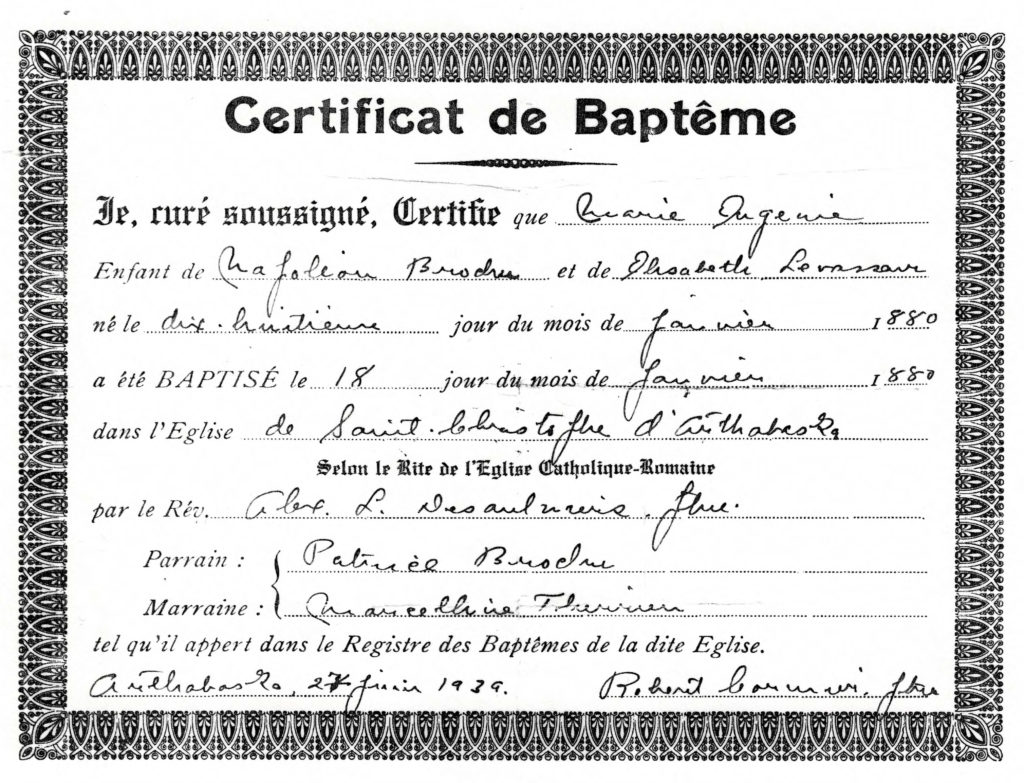 Certificat de Baptême
Je, curé soussigné, Certifie que Marie Eugenie
Enfant de Napoléon Brochu et de Elisabeth Levasseur
né le dix-huitieme jour du mois de janvier 1880
a été BAPTISÉ le 18 jour du mois de janvier 1880
dans l'Eglise de Saint-Christophe d'Arthabaska
Selon le Rite de l'Eglise Catholique-Romaine
par le Rév. Alex. L. Desaulniers, ptre.
Parrain : Patrice Brochu
Marraine : Marcelline Therrien
tel qu'il appert dans le Registre des Baptêmes de la dite Eglise.
Arthabaska, 27 juin 1939. Robert Cormier, ptre